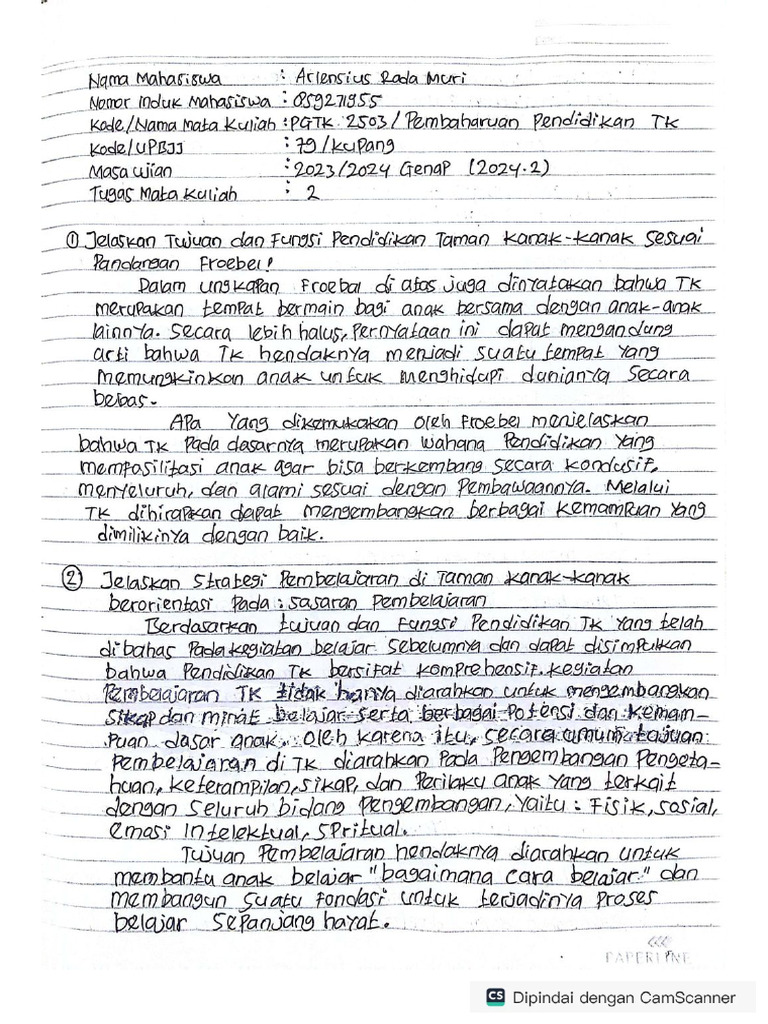 Nama Mahasiswa : Arlensius Rada Muri
Nomor Induk Mahasiswa : 859271955
Kode/Nama Mata Kuliah : PGTK 2503 / Pembaharuan Pendidikan TK
Kode/UPBJJ : 79 / Kupang
Masa Ujian : 2023/2024 Genap (2024.2)
Tugas Mata Kuliah : 2
① Jelaskan Tujuan dan Fungsi Pendidikan Taman Kanak-kanak Sesuai
Pandangan Froebel!
Dalam ungkapan Froebel di atas juga dinyatakan bahwa TK
merupakan tempat bermain bagi anak bersama dengan anak-anak
lainnya. Secara lebih halus, Pernyataan ini dapat mengandung
arti bahwa TK hendaknya menjadi suatu tempat yang
memungkinkan anak untuk menghidupi dunianya secara
bebas.
Apa yang dikemukakan oleh Froebel menjelaskan
bahwa TK Pada dasarnya merupakan wahana Pendidikan yang
memfasilitasi anak agar bisa berkembang secara kondusif,
menyeluruh, dan alami sesuai dengan Pembawaannya. Melalui
TK dihirapkan dapat mengembangkan berbagai kemampuan yang
dimilikinya dengan baik.
② Jelaskan Strategi Pembelajaran di Taman Kanak-kanak
berorientasi Pada : Sasaran Pembelajaran
Berdasarkan tujuan dan Fungsi Pendidikan TK yang telah
di bahas Pada kegiatan belajar sebelumnya dan dapat disimpulkan
bahwa Pendidikan TK bersifat komprehensif. kegiatan
Pembelajaran TK tidak hanya diarahkan untuk mengembangkan
sikap dan minat belajar serta berbagai Potensi dan Kemam-
Puan dasar anak. Oleh karena itu, secara umum tujuan
Pembelajaran di TK diarahkan Pada Pengembangan Pengeta-
huan, keterampilan, sikap, dan Perilaku anak yang terkait
dengan seluruh bidang Pengembangan, Yaitu : Fisik, sosial,
emosi Intelektual, SPritual.
Tujuan Pembelajaran hendaknya diarahkan untuk
membantu anak belajar "bagaimana cara belajar" dan
membangun suatu fondasi untuk terjadinya Proses
belajar sepanjang hayat.
PAPERLINE
CS Dipindai dengan CamScanner